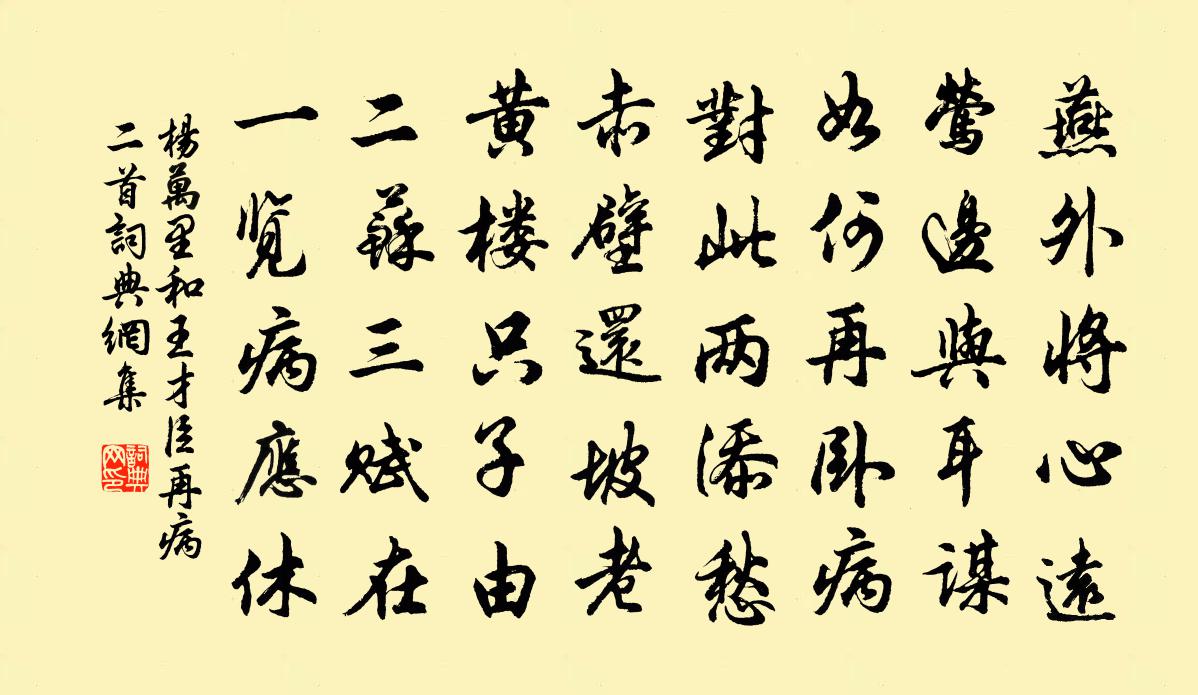 燕外将心遠
鶯邊與耳謀
如何再卧病
對此两添愁
赤壁還坡老
黄楼只子由
二蘇三賦在
一览病應休
楊萬里和王才臣再病
二首詞典網集
詞典
网印